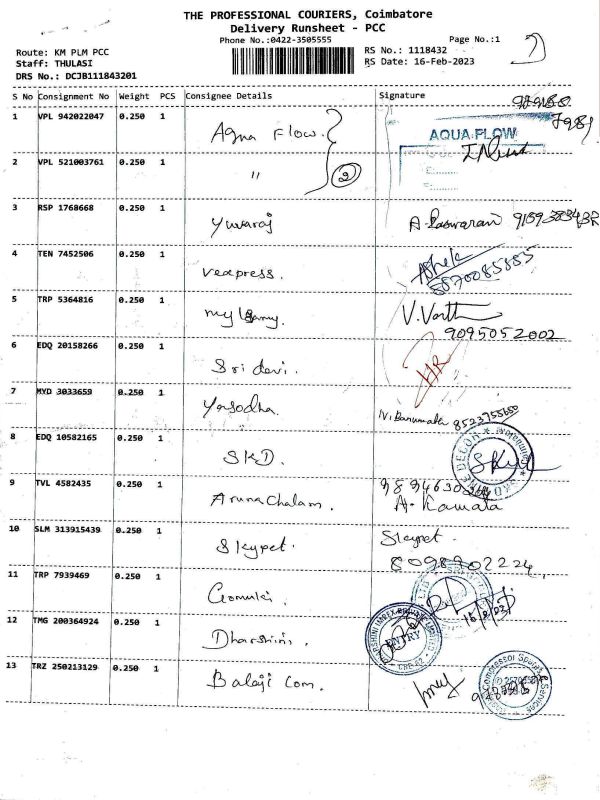 THE PROFESSIONAL COURIERS, Coimbatore
Delivery Runsheet - PCC
Phone No.:0422-3505555
Page No.:1
Route: KM PLM PCC
RS No.: 1118432
Staff: THULASI
RS Date: 16-Feb-2023
DRS No.: DCJB111843201
S No Consignment No Weight PCS Consignee Details Signature
1 VPL 942022047 0.250 1 Aqua Flow.
AQUA FLOW
2 VPL 521003761 0.250 1 "
2
3 RSP 1768668 0.250 1 Yuvaraj
4 TEN 7452506 0.250 1 vexpress. Ashok
8870085885
5 TRP 5364816 0.250 1 V.Varth
9095052002
6 EDQ 20158266 0.250 1 Sri devi. HR
7 MYD 3033659 0.250 1 Yasodha. N. Banumala 8523755680
8 EDQ 10582165 0.250 1 SKD.
9 TVL 4582435 0.250 1 Arunachalam. A. Kamala
10 SLM 313915439 0.250 1 Skypet. Skypet
8098902224
11 TRP 7939469 0.250 1
12 TMG 200364924 0.250 1 Dharshini. ENTRY
16/2/23
13 TRZ 250213129 0.250 1 Balaji Com.
Compressor Spares & Services